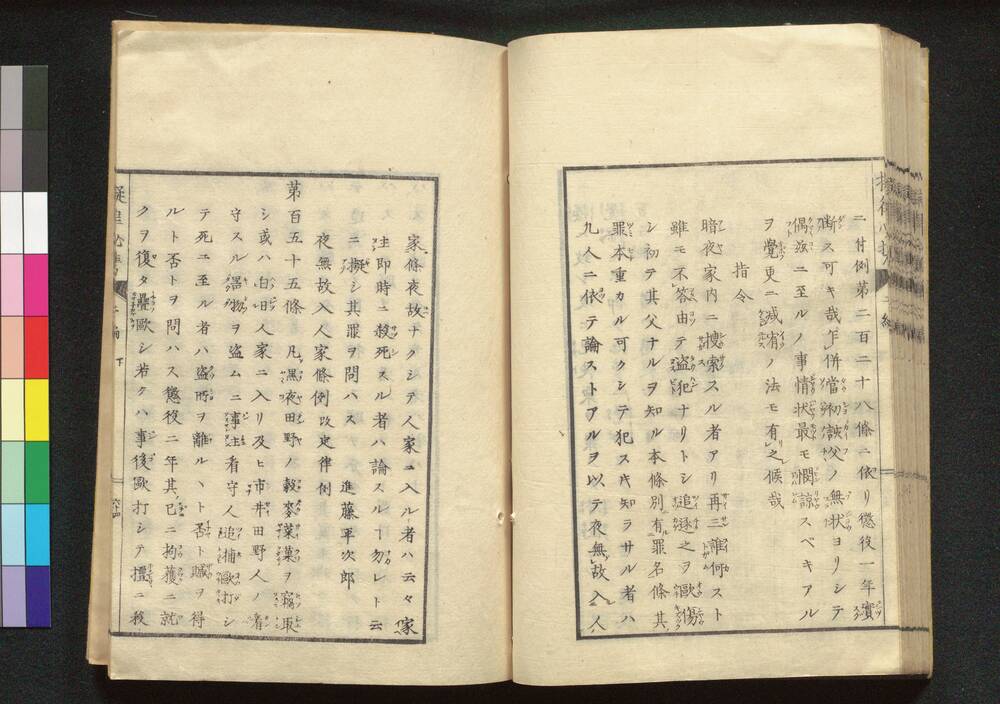 ニ付例第二百二十八條ニ依リ懲役一年實
斷ス可キ哉乍併當初諛父ノ無状ヨリシテ
偶玆ニ至ルノ事情状最モ憫諒スベキアル
ヲ覺更ニ减宥ノ法モ有之候哉
指令
暗夜家内ニ搜索スル者アリ再三誰何スト
雖モ不答由テ盗犯ナリトシ追逐之ヲ毆傷
シ初テ其父ナルヲ知ル本條別有罪名條其
罪本重カル可クシテ犯スキ知ラサル者ハ
凢人ニ依テ論ストアルヲ以テ夜無故入人
家條夜故ナクシテ人家ニ入ル者ハ云々家
主即時ニ殺死スル者ハ論スルヿ勿レト云
ニ擬シ其罪ヲ問ハス 進藤平次郎
夜無故入人家條例 改定律例
第百五十五條 凡黒夜田野ノ穀麥菜菓ヲ竊取
シ或ハ白日人家ニ入リ及ヒ市井田野人ノ看
守スル噐物ヲ盗ムニ事主看守人追捕毆打シ
テ死ニ至ル者ハ盗所ヲ離ルヽト否ト贓ヲ得
ルト否トヲ問ハス懲役二年其已ニ拘獲ニ就
クヲ復タ疊毆シ若クハ事後毆打シテ擅ニ殺
下
六十四